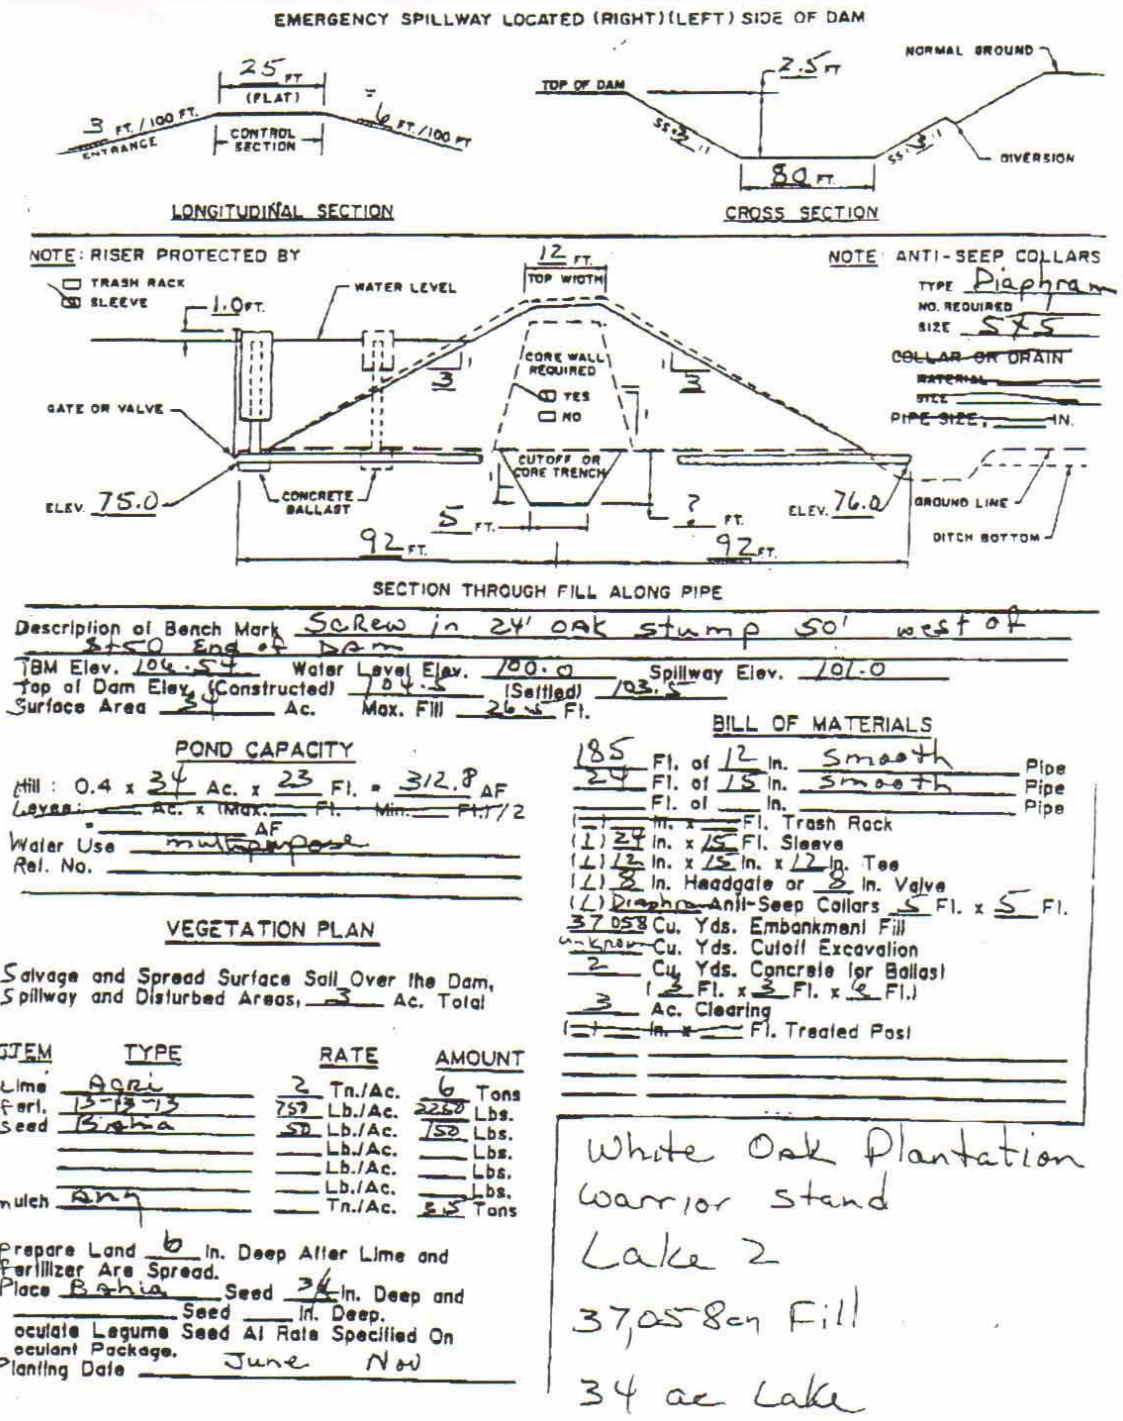 EMERGENCY SPILLWAY LOCATED (RIGHT)(LEFT) SIDE OF DAM
25 FT
(FLAT)
3 FT./100 FT.
ENTRANCE
CONTROL
SECTION
6 FT/100 FT
LONGITUDINAL SECTION
TOP OF DAM
2.5 FT
NORMAL GROUND
SS: 3:1
SS: 3:1
DIVERSION
80 FT.
CROSS SECTION
NOTE: RISER PROTECTED BY
TRASH RACK
SLEEVE
1.0 FT.
WATER LEVEL
12 FT.
TOP WIDTH
NOTE: ANTI-SEEP COLLARS
TYPE Diaphram
NO. REQUIRED
SIZE 5 X 5
COLLAR OR DRAIN
MATERIAL
SIZE
PIPE SIZE, IN.
CORE WALL
REQUIRED
YES
NO
1
3
1
3
GATE OR VALVE
CUTOFF OR
CORE TRENCH
ELEV. 75.0
CONCRETE
BALLAST
5 FT.
? FT.
ELEV. 76.0
GROUND LINE
DITCH BOTTOM
92 FT.
92 FT.
SECTION THROUGH FILL ALONG PIPE
Description of Bench Mark Screw in 24' OAK stump 50' west of
End of DAM
TBM Elev. 106.54 Water Level Elev. 100.0 Spillway Elev. 101.0
Top of Dam Elev. (Constructed) 104.5 (Settled) 103.5
Surface Area 34 Ac. Max. Fill 26.5 Ft.
POND CAPACITY
Hill: 0.4 x 34 Ac. x 23 Ft. = 312.8 AF
Levee: Ac. x (Max. Ft. Min. Ft.)/2
= AF
Water Use multipurpose
Rel. No.
VEGETATION PLAN
Salvage and Spread Surface Soil Over the Dam,
Spillway and Disturbed Areas, 3 Ac. Total
ITEM TYPE RATE AMOUNT
Lime Agri 2 Tn./Ac. 6 Tons
Fert. 13-13-13 750 Lb./Ac. 2250 Lbs.
Seed Bahia 50 Lb./Ac. 150 Lbs.
Lb./Ac. Lbs.
Lb./Ac. Lbs.
Lb./Ac. Lbs.
mulch Any Tn./Ac. Tons
Prepare Land 6 In. Deep After Lime and
Fertilizer Are Spread.
Place Bahia Seed 3/4 In. Deep and
Seed In. Deep.
oculate Legume Seed At Rate Specified On
oculant Package.
Planting Date June Nov
BILL OF MATERIALS
185 Ft. of 12 In. Smooth Pipe
24 Ft. of 15 In. Smooth Pipe
Ft. of In. Pipe
(-) In. x Ft. Trash Rack
(1) 24 In. x 15 Ft. Sleeve
(1) 12 In. x 15 In. x 12 In. Tee
(1) 8 In. Headgate or 8 In. Valve
(1) Diaphram Anti-Seep Collars 5 Ft. x 5 Ft.
37058 Cu. Yds. Embankment Fill
unknown Cu. Yds. Cutoff Excavation
2 Cu. Yds. Concrete for Ballast
(3 Ft. x 3 Ft. x Ft.)
3 Ac. Clearing
(-) In. x Ft. Treated Post
White Oak Plantation
Warrior Stand
Lake 2
37,058 cy Fill
34 ac Lake